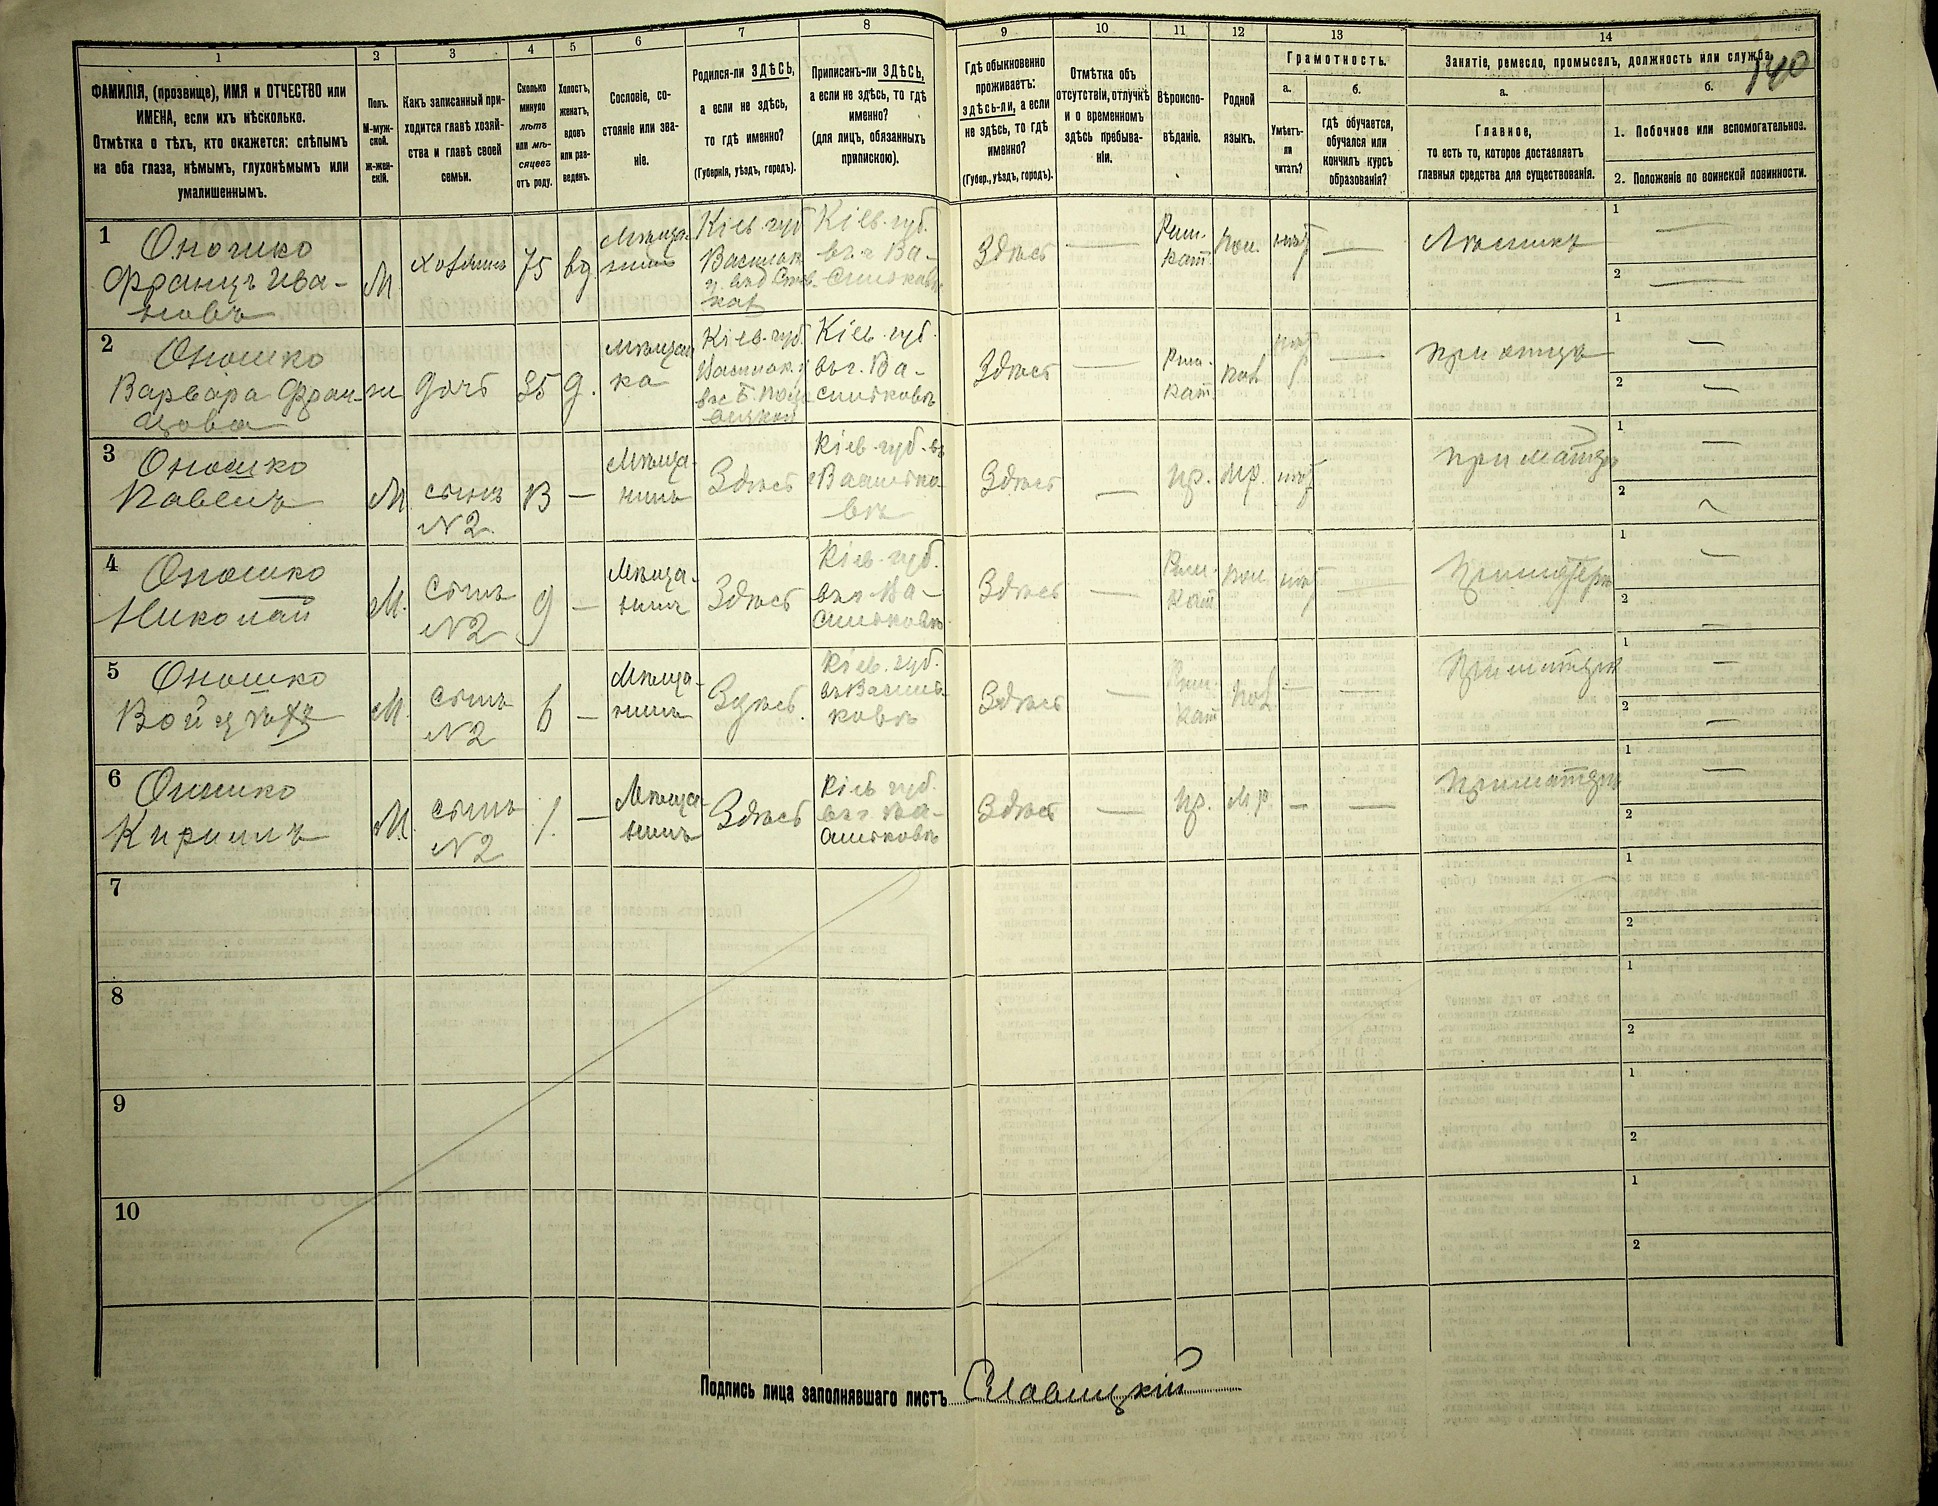 1
2
3
4
5
6
7
8
9
10
11
12
13
14
140
ФАМИЛІЯ, (прозвище), ИМЯ и ОТЧЕСТВО или
ИМЕНА, если ихъ нѣсколько.
Отмѣтка о тѣхъ, кто окажется: слѣпымъ
на оба глаза, нѣмымъ, глухонѣмымъ или
умалишеннымъ.
Полъ.
М-муж-
ской.
Ж-жен-
скій.
Какъ записанный при-
ходится главѣ хозяй-
ства и главѣ своей
семьи.
Сколько
минуло
лѣтъ
или мѣ-
сяцевъ
отъ роду.
Холостъ,
женатъ,
вдовъ
или раз-
веденъ.
Сословіе, со-
стояніе или зва-
ніе.
Родился-ли ЗДѢСЬ,
а если не здѣсь,
то гдѣ именно?
(Губернія, уѣздъ, городъ).
Приписанъ-ли ЗДѢСЬ,
а если не здѣсь, то гдѣ
именно?
(для лицъ, обязанныхъ
припискою).
Гдѣ обыкновенно
проживаетъ:
здѣсь-ли, а если
не здѣсь, то гдѣ
именно?
(Губер., уѣздъ, городъ).
Отмѣтка объ
отсутствіи, отлучкѣ
и о временномъ
здѣсь пребыва-
ніи.
Вѣроиспо-
вѣданіе.
Родной
языкъ.
Грамотность.
а.
Умѣетъ-
ли
читать?
б.
гдѣ обучается,
обучался или
кончилъ курсъ
образованія?
Занятіе, ремесло, промыселъ, должность или служба.
а.
Главное,
то есть то, которое доставляетъ
главныя средства для существованія.
б.
1. Побочное или вспомогательное.
2. Положеніе по воинской повинности.
1
Оношко
Францъ Ива-
новъ
М
хозяинъ
75
вд
Мѣща-
нинъ
Кіев. губ
Кіев. губ.
въ г. Ва-
сильковѣ
Здѣсь
—
Рим.
кат.
пол.
нѣт
—
1 —
2 —
2
Оношко
Варвара Фран-
цова
ж
дочь
35
д.
Мѣщан
ка
Кіев. губ.
Кіев. губ.
въ г. Ва-
сильковѣ
Здѣсь
—
Рим.
кат.
пол
нѣт
—
при отцѣ
1 —
2 —
3
Оношко
Павелъ
М
сынъ
№ 2.
13
—
Мѣща-
нинъ
Здѣсь
Кіев. губ. въ
г Василько
вѣ
Здѣсь
—
пр.
мр.
нѣт
при матери
1 —
2
4
Оношко
Николай
М.
Сынъ
№ 2
9
—
Мѣща-
нинъ
Здѣсь
Кіев. губ.
въ г. Ва-
сильковѣ
Здѣсь
—
Рим.
кат
пол.
нѣт
—
При матери
1 —
2 —
5
Оношко
Войцѣхъ
М.
Сынъ
№ 2
6
—
Мѣща-
нинъ
Здѣсь.
Кіев. губ.
въ Василь-
ковѣ
Здѣсь
—
Рим.
кат
пол
—
—
При матери
1 —
2 —
6
Оношко
Кирилъ
М.
сынъ
№ 2
1.
—
Мѣща-
нинъ
Здѣсь
Кіев губ.
въ г. Ва-
сильковѣ
Здѣсь
—
пр.
мр.
—
—
При матери
1 —
2
7
1
2
8
1
2
9
1
2
10
1
2
Подпись лица заполнявшаго листъ Славицкій